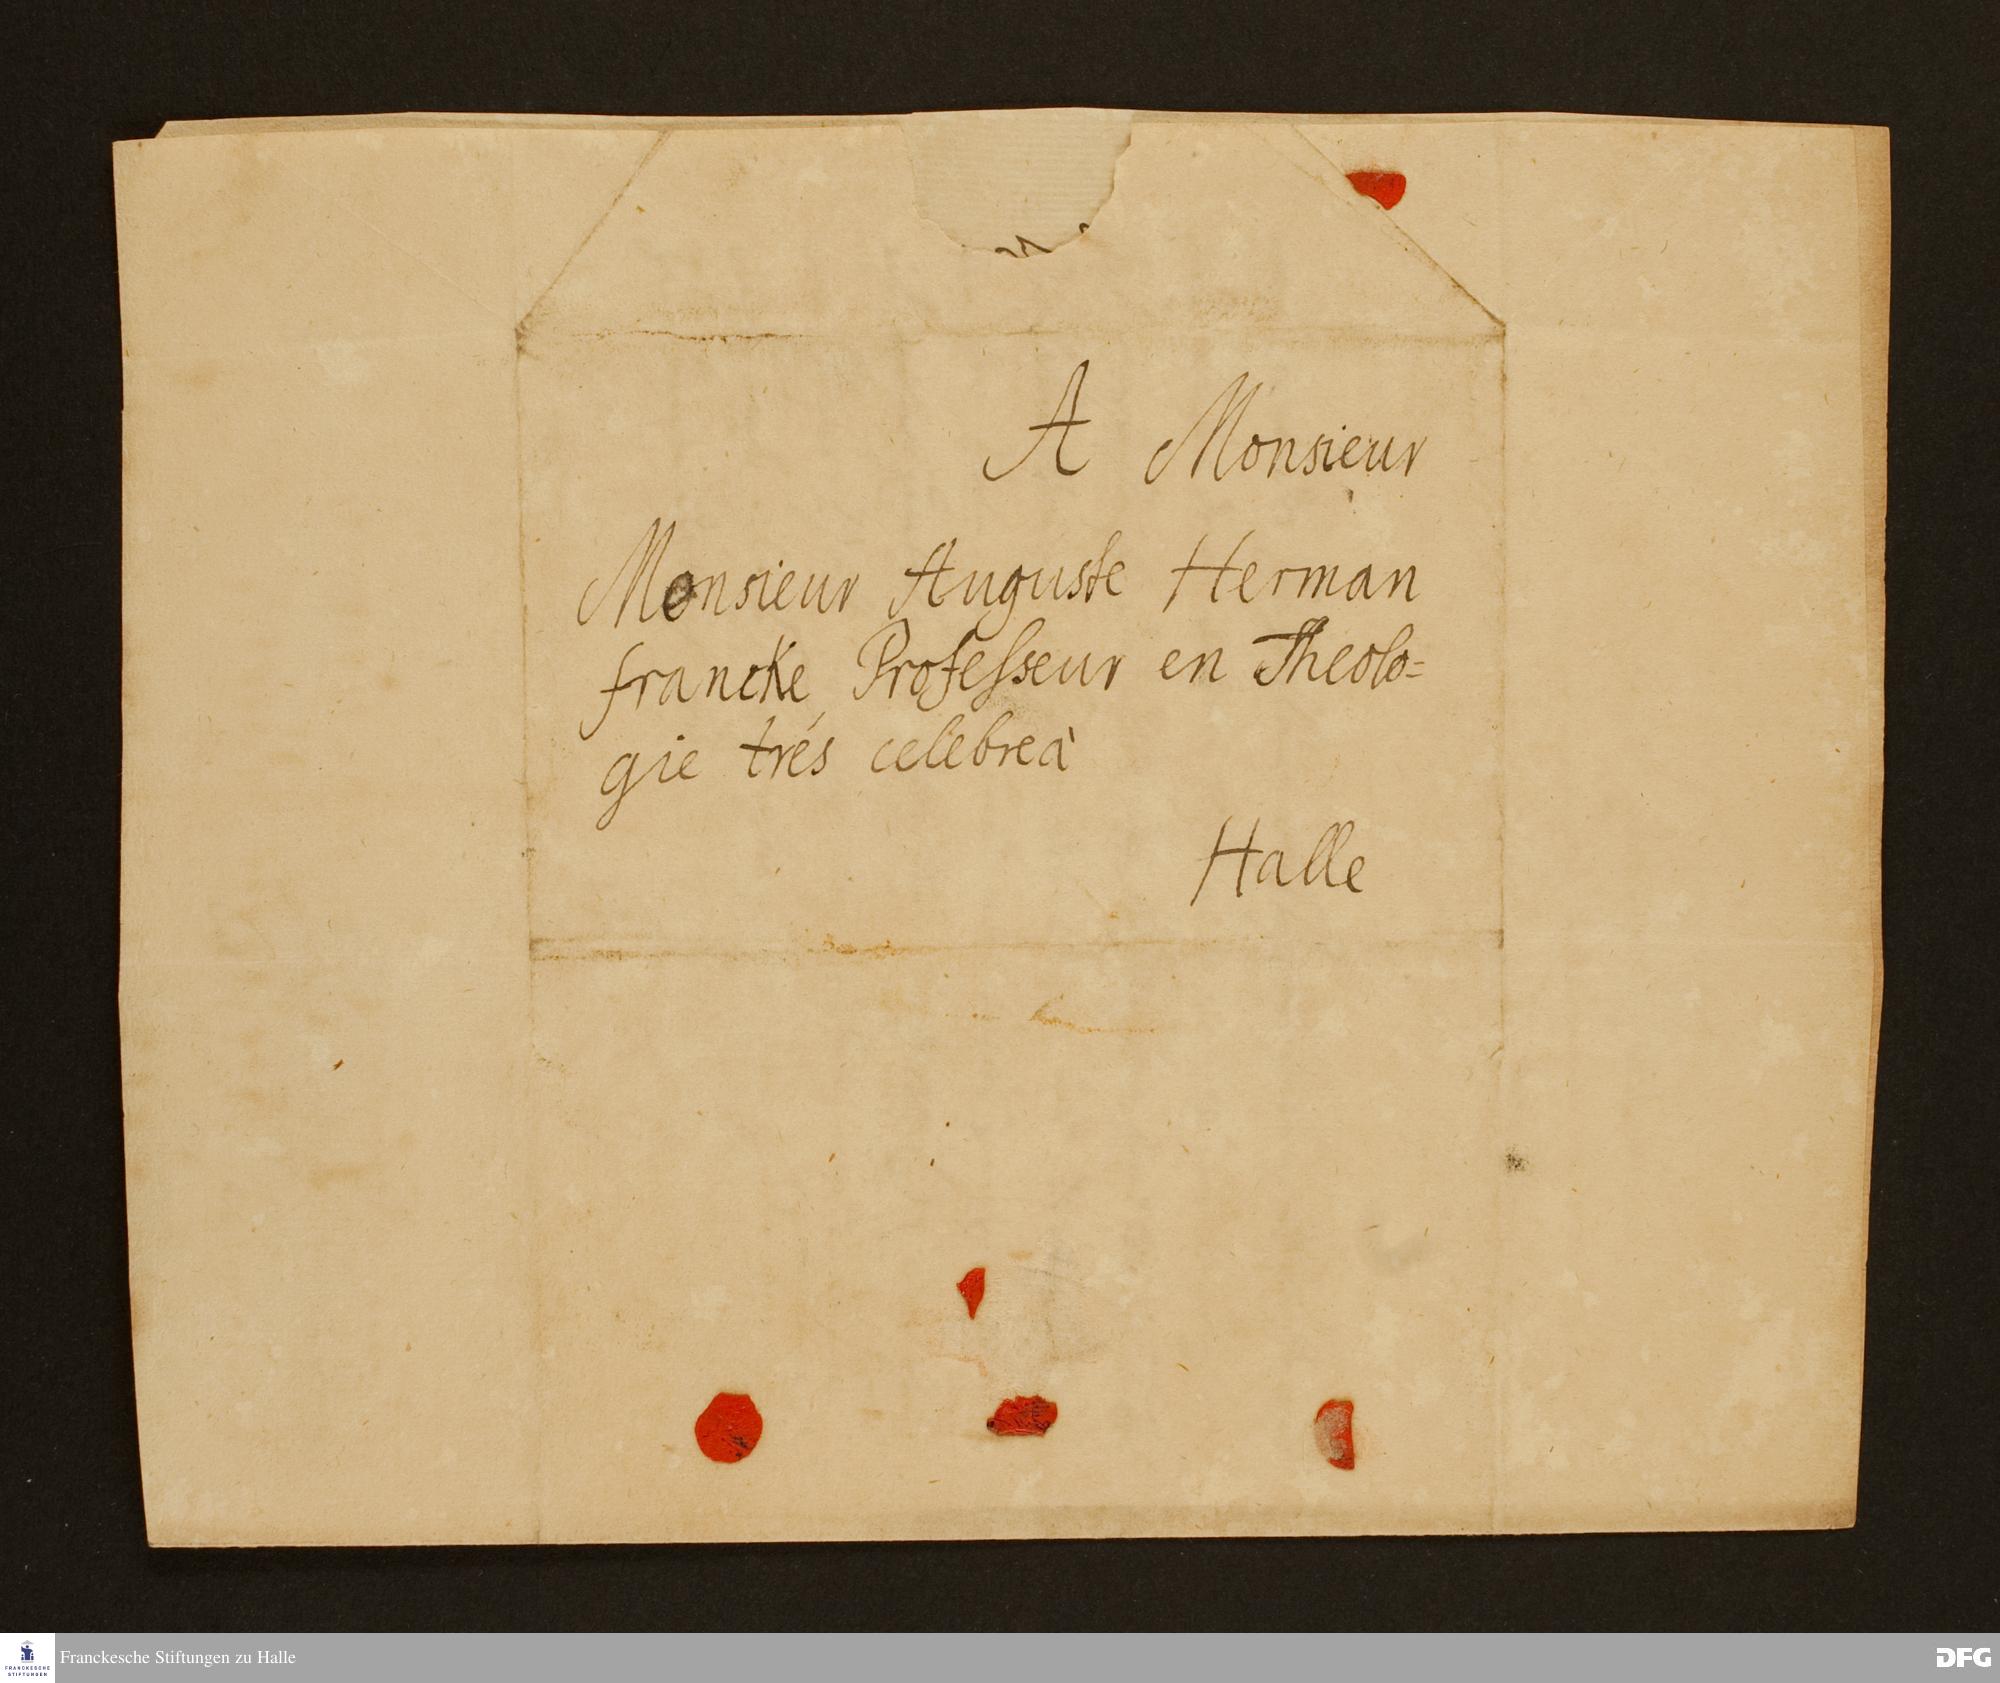 A Monsieur
Monsieur Auguste Herman
francke Professeur en Theolo=
gie trés celebre à
Halle
Franckesche Stiftungen zu Halle
FRANCKESCHE
STIFTUNGEN
DFG